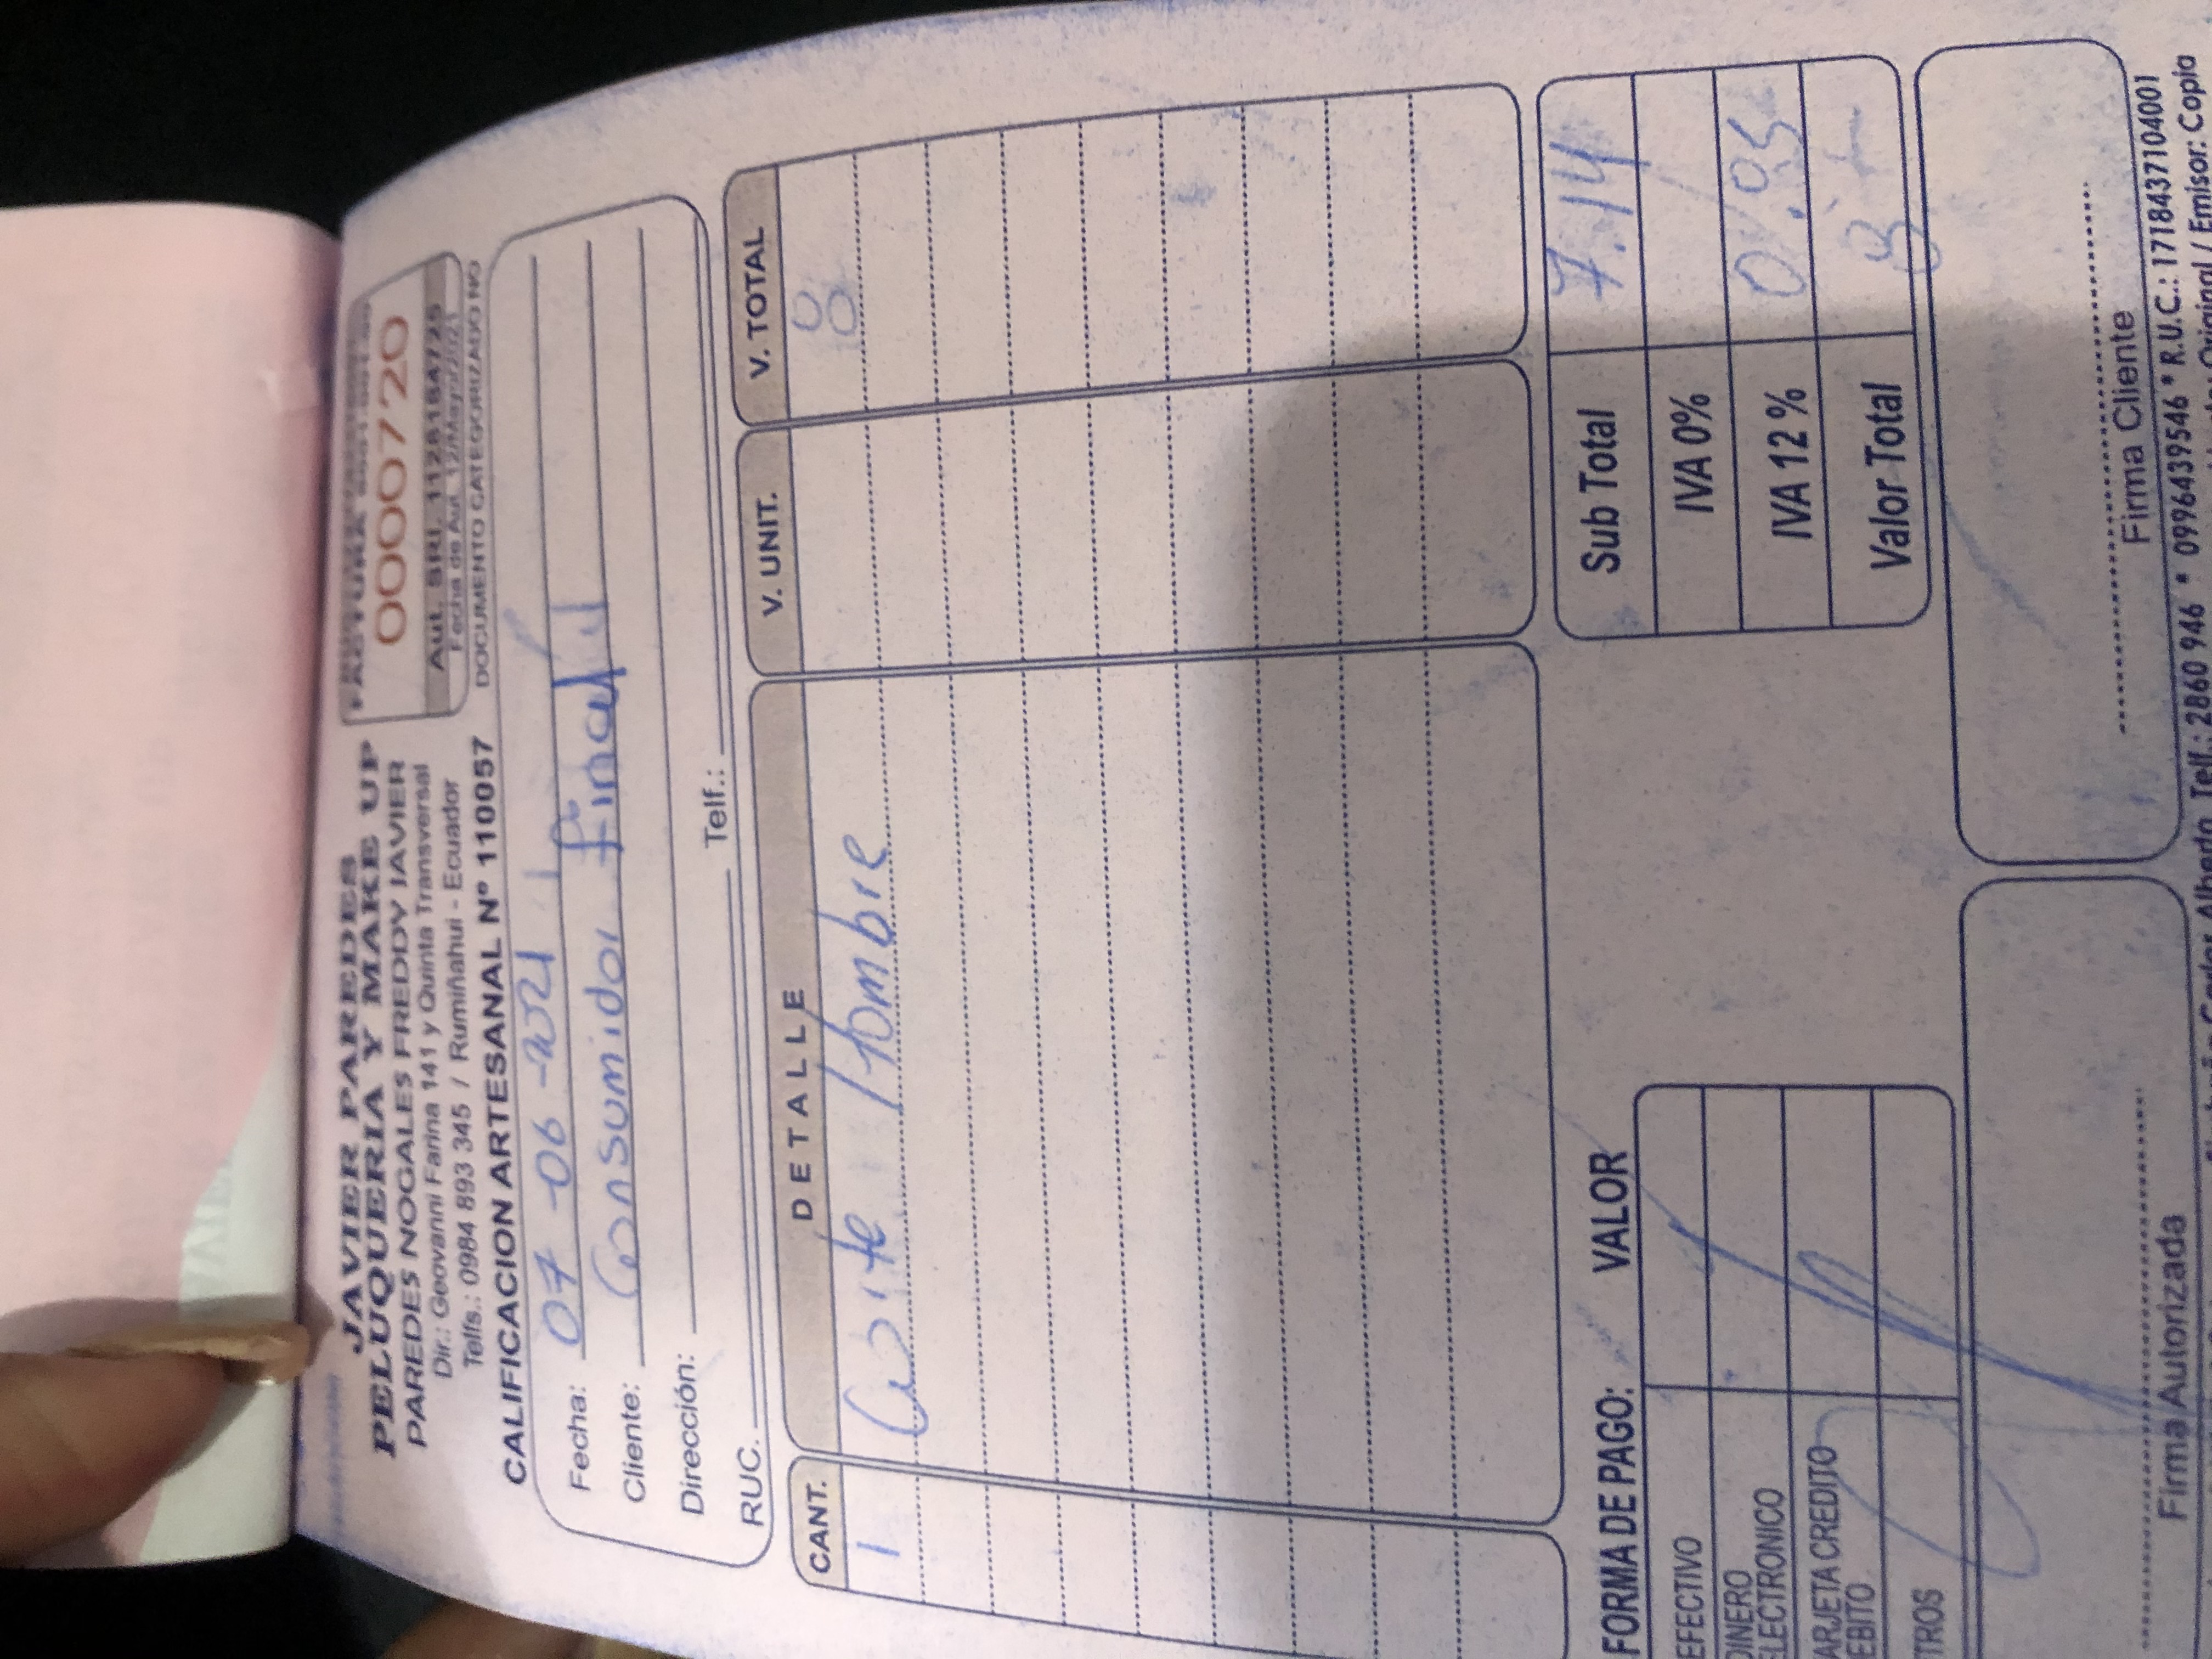 JAVIER PAREDES
PELUQUERIA Y MAKE UP
PAREDES NOGALES FREDDY JAVIER
Dir.: Geovanni Farina 141 y Quinta Transversal
Telfs.: 0984 893 345 / Rumiñahui - Ecuador
CALIFICACION ARTESANAL Nº 110057
FACTURA
0000720
Aut. SRI. 1128184725
Fecha de Aut. 12/Mayo/2021
DOCUMENTO CATEGORIZADO NO
Fecha: 07-06-2021
Cliente: Consumidor final
Dirección:
RUC. Telf.:
CANT. DETALLE V. UNIT. V. TOTAL
1 Corte Hombre 8
FORMA DE PAGO: VALOR
EFECTIVO
DINERO
ELECTRONICO
TARJETA CREDITO
DEBITO
OTROS
Sub Total 7.14
IVA 0%
IVA 12 % 0.95
Valor Total 8
Firma Autorizada
Firma Cliente
Carlos Alberto Telf.: 2860 946 * 0996439546 * R.U.C.: 1718437104001
Original / Emisor: Copia